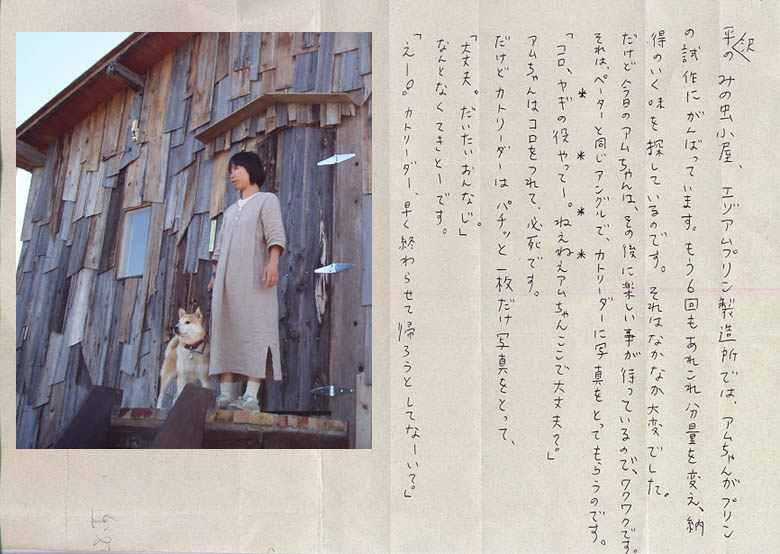 平沢の みの虫小屋、エゾアムプリン製造所では、アムちゃんがプリン
の試作にがんばっています。もう6回もあれこれ分量を変え、納
得のいく味を探しているのです。それはなかなか大変でした。
だけど今日のアムちゃんは、その後に楽しい事が待っているので、ワクワクです。
それは、ペーターと同じアングルで、カトリーダーに写真をとってもらうのです。
* * * *
「コロ、ヤギの役やってー。ねえねえアムちゃんここで大丈夫?。」
アムちゃんはコロをつれて、必死です。
だけどカトリーダーは パチッと一枚だけ写真をとって、
「大丈夫。だいたいおんなじ。」
なんとなくてきとーです。
「えー!?カトリーダー、早く終わらせて帰ろうとしてなーい?。」